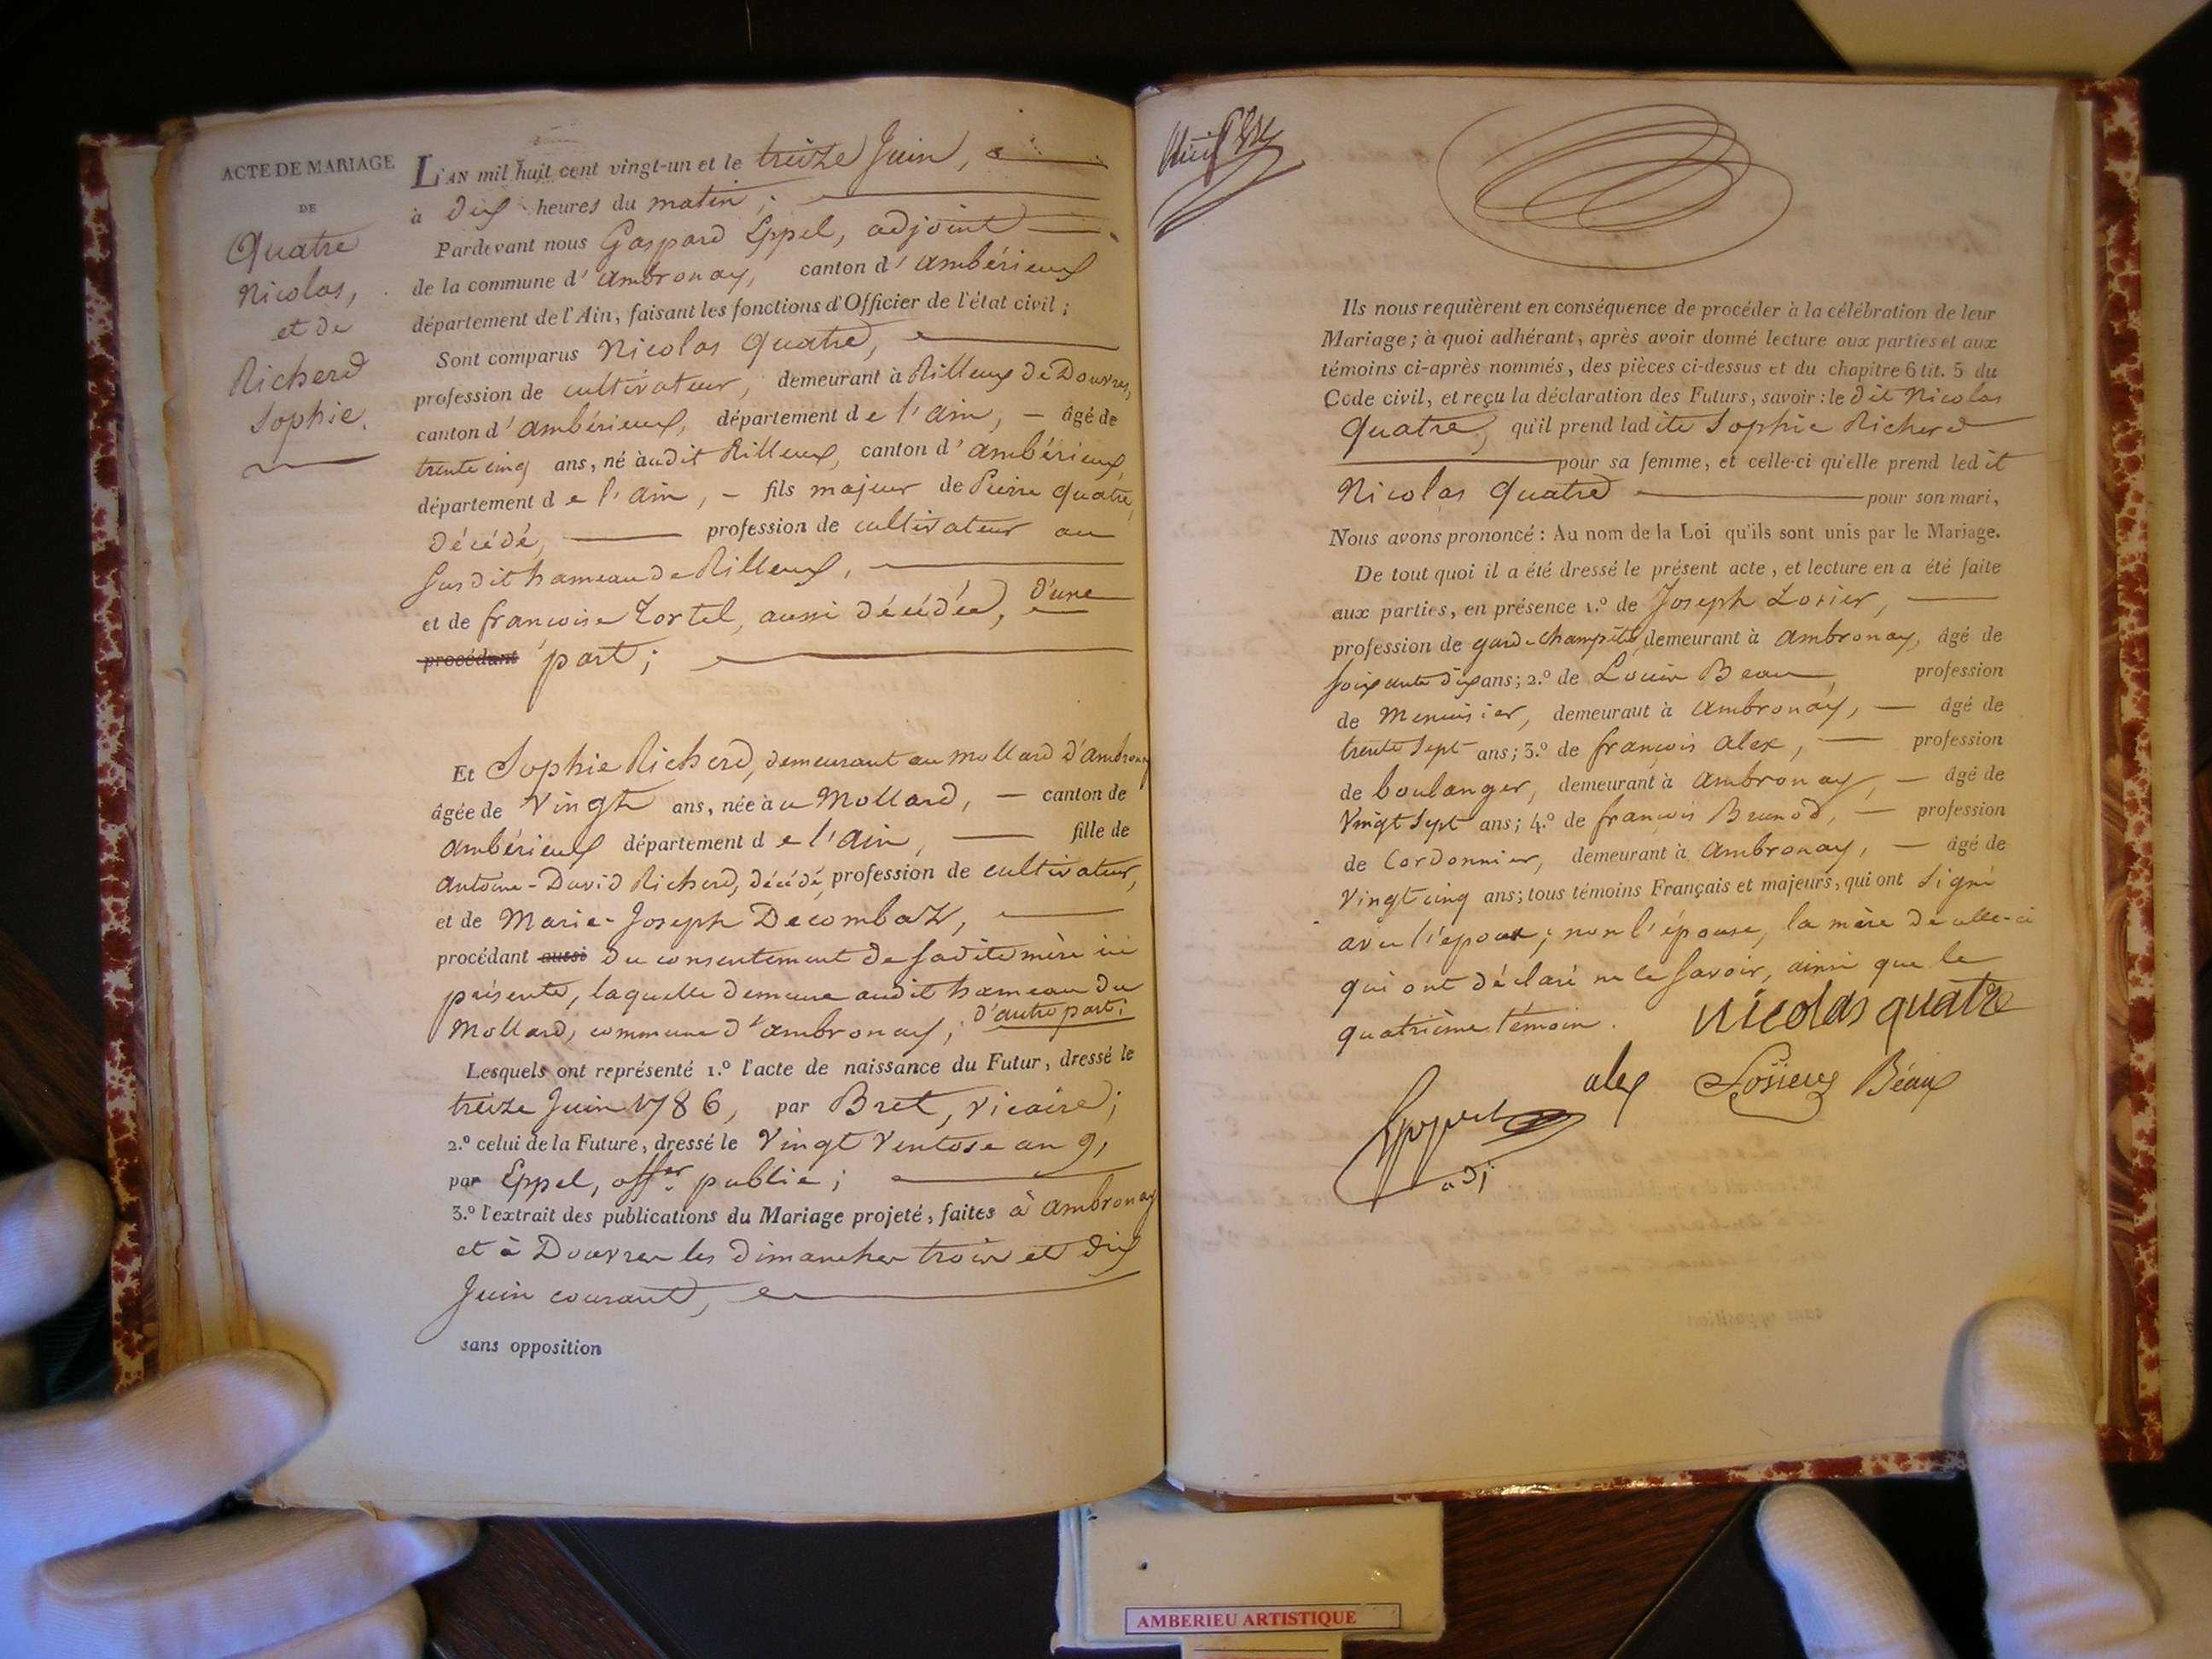 ACTE DE MARIAGE
DE
Quatre
Nicolas,
et de
Richerd
Sophie.
L'AN mil huit cent vingt-un et le treize Juin,
à dix heures du matin,
Pardevant nous Gaspard Eppel, adjoint
de la commune d'ambronay, canton d'ambérieux
département de l'Ain, faisant les fonctions d'Officier de l'état civil;
Sont comparus Nicolas Quatre,
profession de cultivateur, demeurant à Rilleux de Douvres,
canton d'ambérieux, département de l'ain, — âgé de
trente cinq ans, né àudit Rilleux, canton d'ambérieux,
département de l'ain, — fils majeur de Pierre Quatre,
décédé, — profession de cultivateur au
susdit hameau de Rilleux,
et de francoise Tortel, aussi décédée, d'une
procédant part;
Et Sophie Richerd, demeurant au mollard d'ambronay
âgée de Vingt ans, née àu Mollard, — canton de
ambérieux département de l'ain, — fille de
antoine-David Richerd, décédé, profession de cultivateur,
et de Marie-Joseph Decombaz,
procédant aussi du consentement de sadite mère ici
présente, laquelle demeure audit hameau du
Mollard, commune d'ambronay; d'autre part;
Lesquels ont représenté 1.º l'acte de naissance du Futur, dressé le
treize Juin 1786, par Bret, vicaire;
2.º celui de la Future, dressé le Vingt Ventose an 9,
par Eppel, offer public;
3.º l'extrait des publications du Mariage projeté, faites à ambronay
et à Douvres les dimanches trois et dix
Juin courant,
sans opposition
Ils nous requièrent en conséquence de procéder à la célébration de leur
Mariage; à quoi adhérant, après avoir donné lecture aux parties et aux
témoins ci-après nommés, des pièces ci-dessus et du chapitre 6 tit. 5 du
Code civil, et reçu la déclaration des Futurs, savoir: le dit Nicolas
Quatre, qu'il prend ladite Sophie Richerd
pour sa femme, et celle-ci qu'elle prend ledit
Nicolas Quatre — pour son mari,
Nous avons prononcé: Au nom de la Loi qu'ils sont unis par le Mariage.
De tout quoi il a été dressé le présent acte, et lecture en a été faite
aux parties, en présence 1.º de Joseph Losier,
profession de garde champêtre, demeurant à ambronay, âgé de
soixante dix ans; 2.º de Louis Beau, profession
de Menuisier, demeuraut à ambronay, — âgé de
trente sept ans; 3.º de françois alex, — profession
de boulanger, demeurant à ambronay, — âgé de
Vingt sept ans; 4.º de françois Brunod, — profession
de Cordonnier, demeurant à ambronay, — âgé de
Vingt cinq ans; tous témoins Français et majeurs, qui ont signé
avec l'époux; non l'épouse, la mère de celle-ci
qui ont déclaré ne le savoir, ainsi que le
quatrième témoin. nicolas quatre
alex Losier Béaux
adj
AMBERIEU ARTISTIQUE